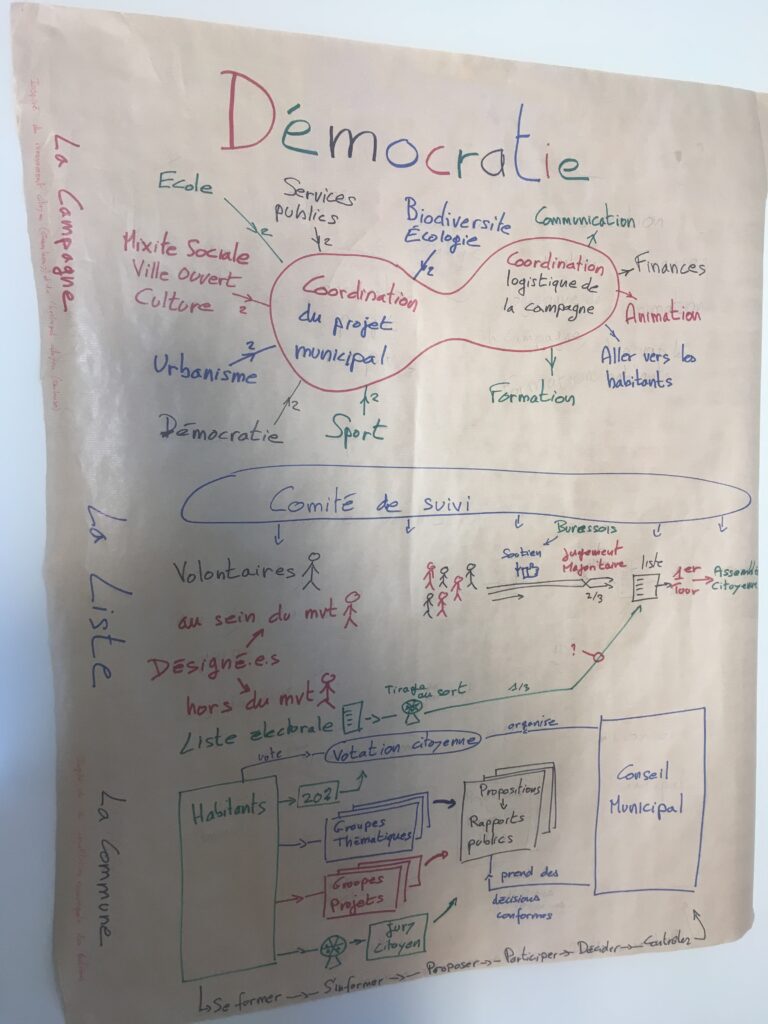 Démocratie
La Campagne
Ecole
Services
publics
Biodiversite
Écologie
Communication
Mixite Sociale
Ville Ouvert
Culture
Coordination
du projet
municipal
Coordination
logistique de
la campagne
Finances
Animation
Aller vers les
habitants
Formation
Urbanisme
Démocratie
Sport
2
2
2
2
2
2
2
La Liste
Comité de suivi
Volontaires
au sein du mvt
Désigné.e.s
hors du mvt
Soutien
Buressois
Jugement
Majoritaire
2/3
liste
1er
Tour
Citoyenne
?
Liste electorale
Tirage
au sort
1/3
La Commune
vote
Votation citoyenne
organise
Habitants
Groupes
Thématiques
Groupes
Projets
Jury
citoyen
Propositions
Rapports
publics
Conseil
Municipal
prend des
décisions
conformes
Se former
S'informer
Proposer
Participer
Décider
Contrôler